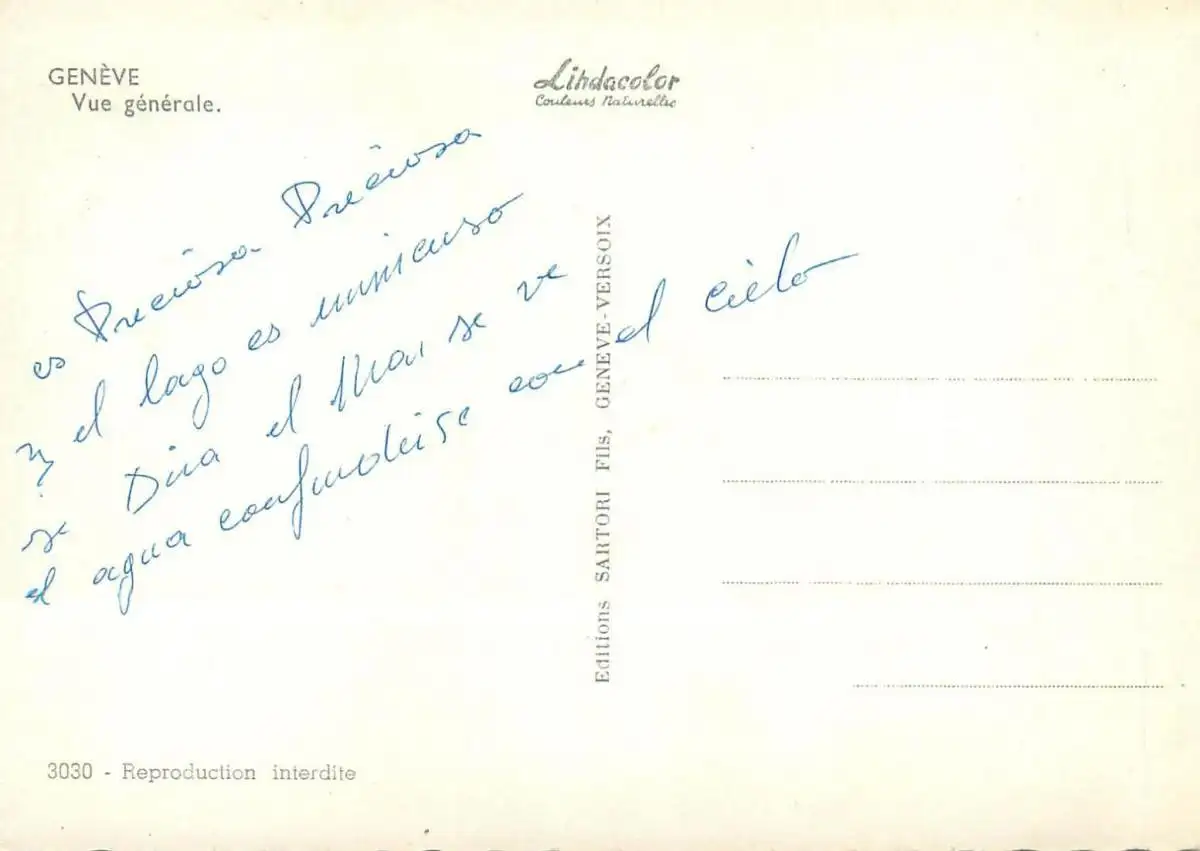 GENÈVE
Vue générale.
Lindacolor
Couleurs Naturelles
es Preciosa Preciosa
y el lago es inmienso
se Diria el Mar se ve
el agua confundirse con el cielo
Editions SARTORI Fils, GENEVE-VERSOIX
3030 - Reproduction interdite